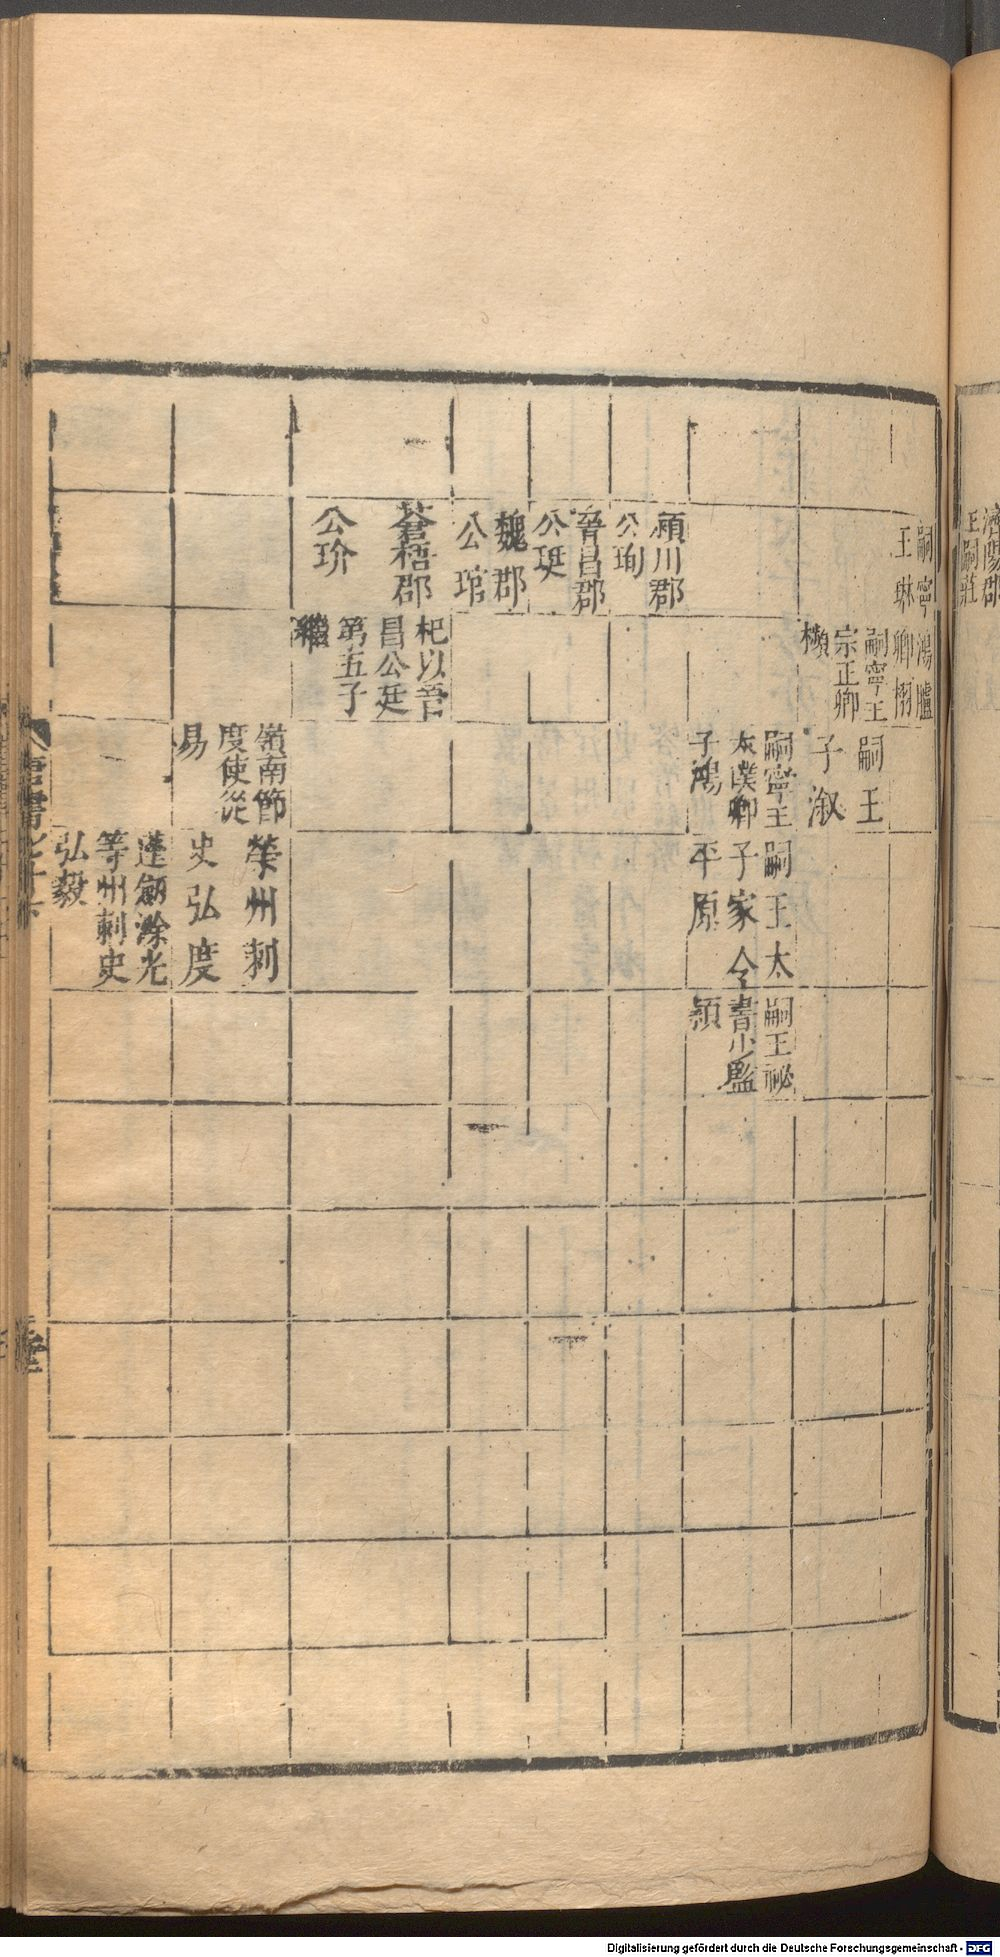 濟陽郡
王嗣莊
嗣寧
王琳
鴻臚
卿栩
嗣寧王
宗正卿
嗣王
子溆
嗣寧王
太僕卿
子鴻
嗣王太
子家令
平原
嗣王祕
書少監
潁川郡
公珣
晉昌郡
公珽
魏郡
公琯
蒼梧郡
公玠
杞以吾
昌公廷
第五子
繼
嶺南節
度使從
易
榮州刺
史弘度
蓬劒滁光
等州刺史
弘毅
唐書七十下
Digitalisierung gefördert durch die Deutsche Forschungsgemeinschaft - DFG